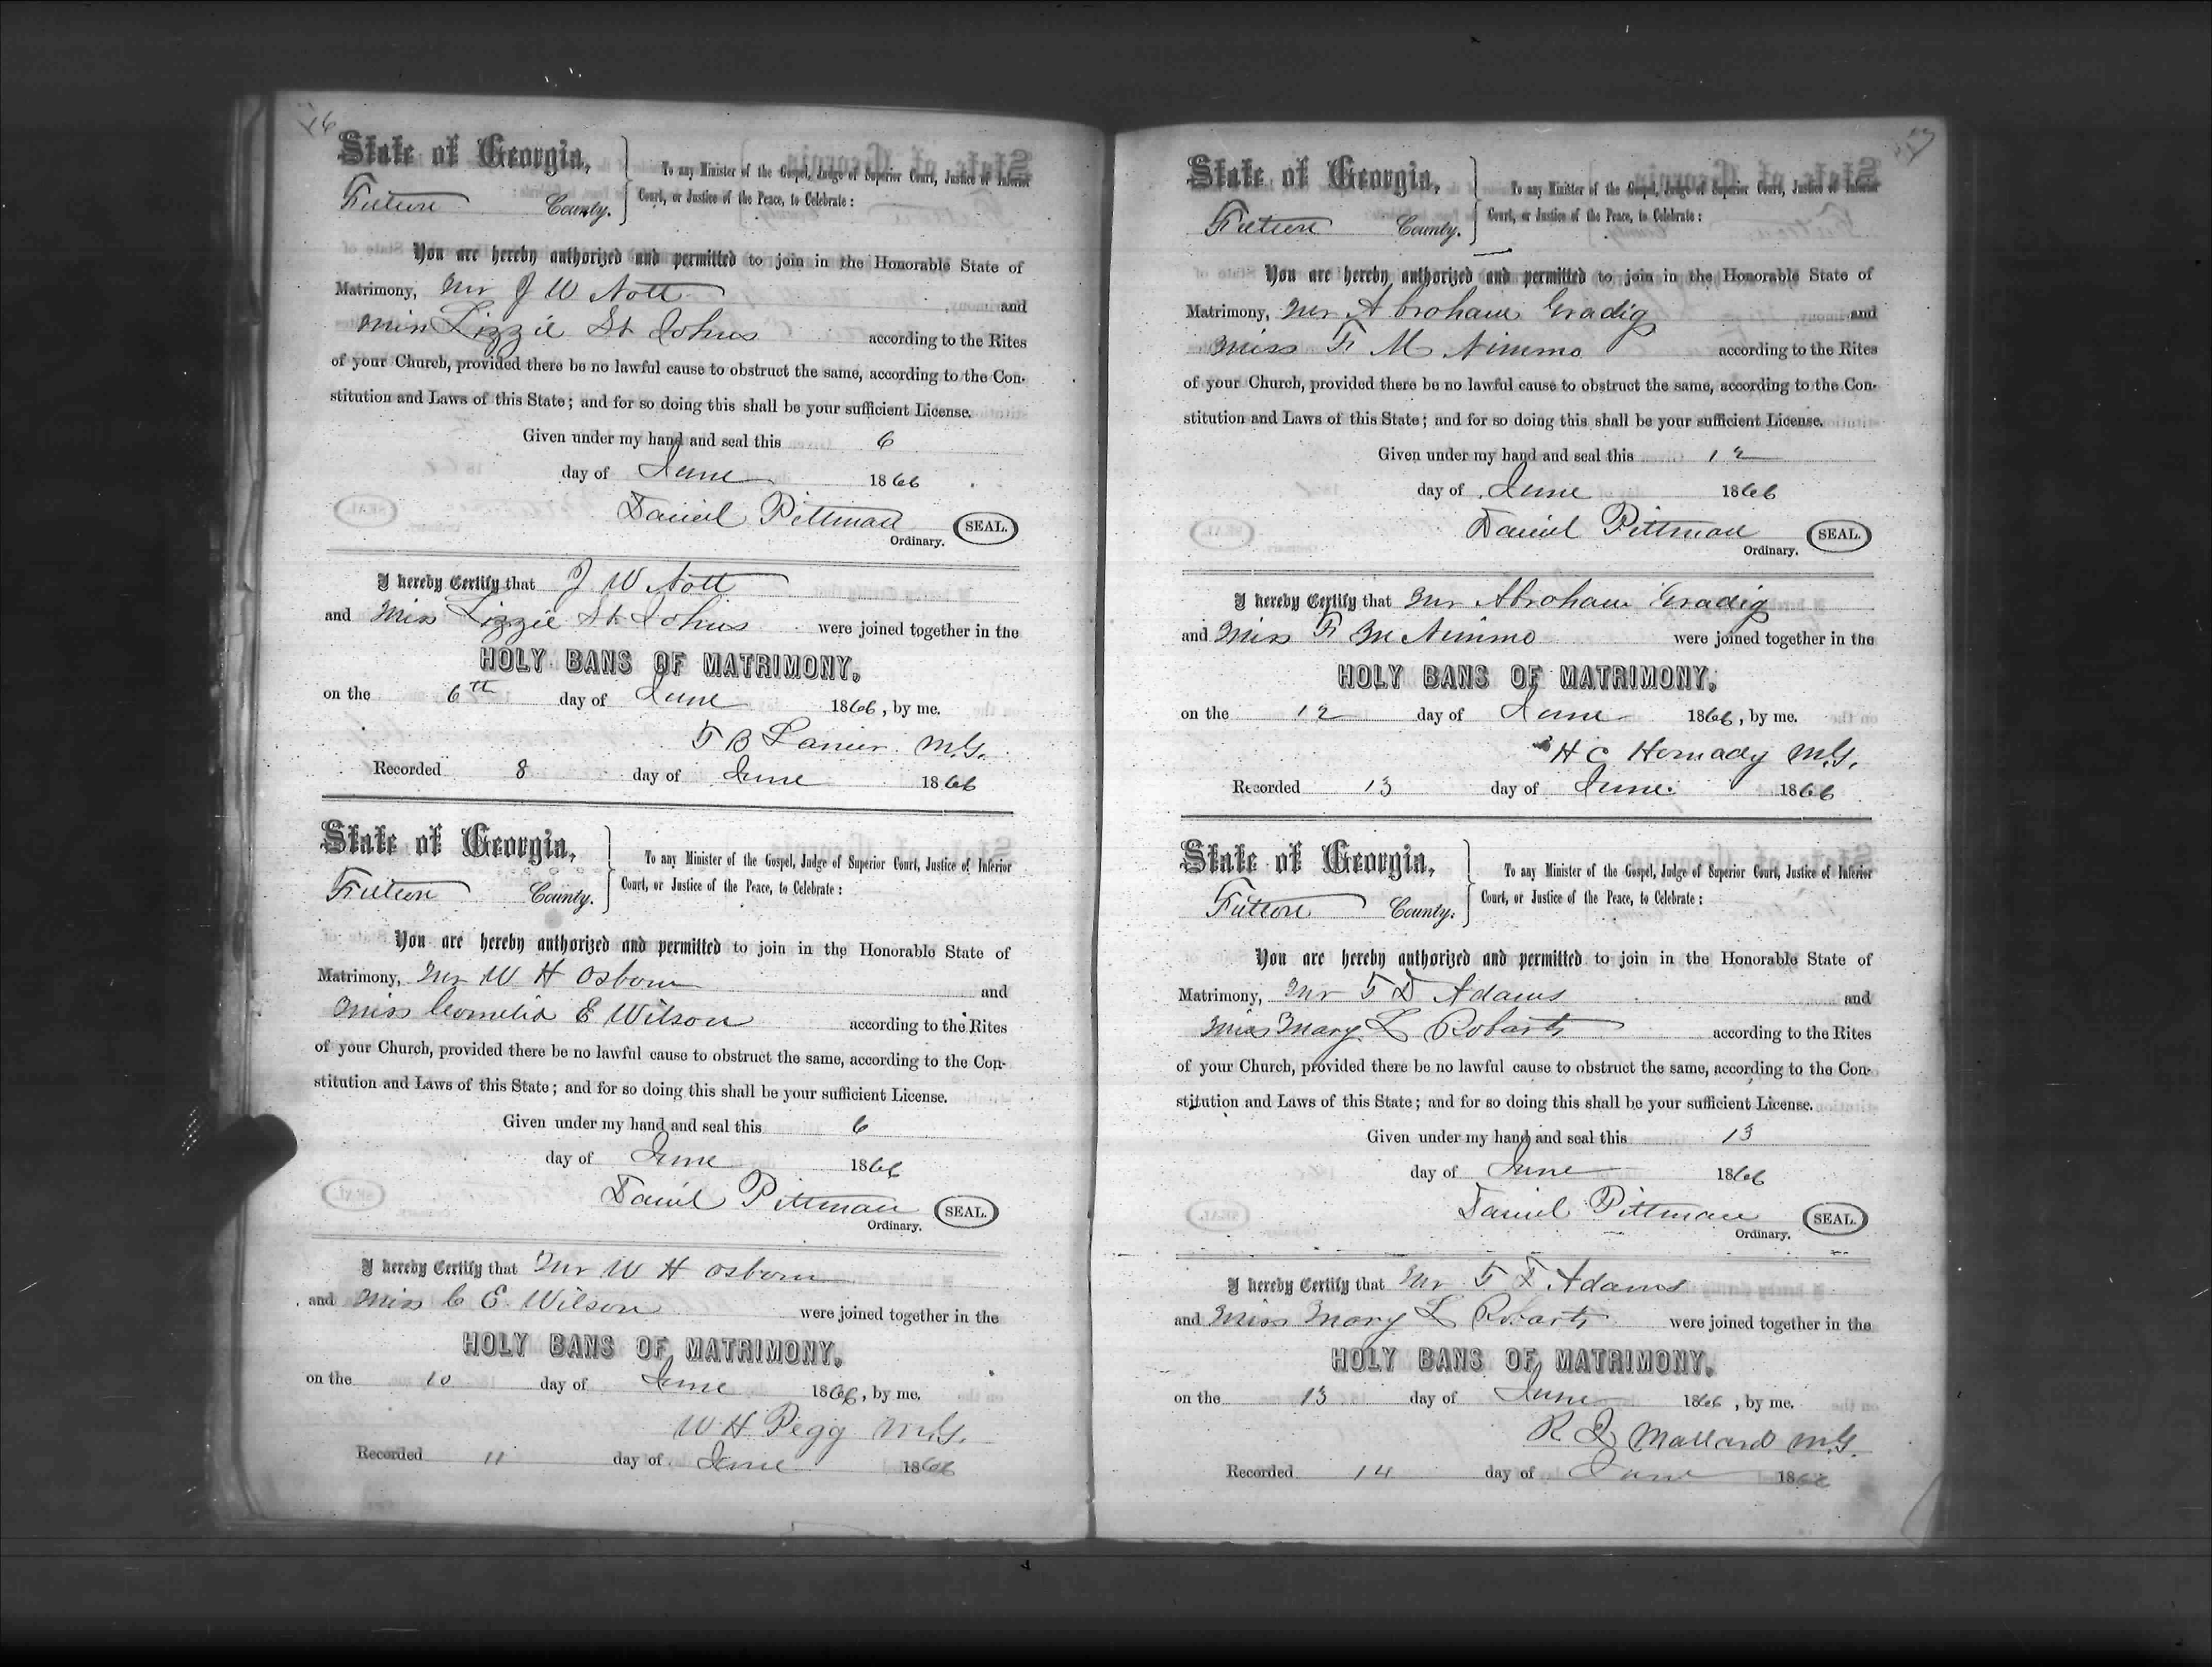 16
State of Georgia,
Fulton County.
To any Minister of the Gospel, Judge of Superior Court, Justice of Inferior
Court, or Justice of the Peace, to Celebrate:
You are hereby authorized and permitted to join in the Honorable State of
Matrimony, Mr J W Nott and
Miss Lizzie St Johns according to the Rites
of your Church, provided there be no lawful cause to obstruct the same, according to the Con-
stitution and Laws of this State; and for so doing this shall be your sufficient License.
Given under my hand and seal this 6
day of June 1866
Daniel Pittman SEAL.
Ordinary.
I hereby Certify that J W Nott
and Miss Lizzie St Johns were joined together in the
HOLY BANS OF MATRIMONY,
on the 6th day of June 1866, by me.
B Lanier M.G.
Recorded 8 day of June 1866
State of Georgia,
Fulton County.
To any Minister of the Gospel, Judge of Superior Court, Justice of Inferior
Court, or Justice of the Peace, to Celebrate:
You are hereby authorized and permitted to join in the Honorable State of
Matrimony, Mr W H Osborn and
Miss Cornelia E Wilson according to the Rites
of your Church, provided there be no lawful cause to obstruct the same, according to the Con-
stitution and Laws of this State; and for so doing this shall be your sufficient License.
Given under my hand and seal this 6
day of June 1866
Daniel Pittman SEAL.
Ordinary.
I hereby Certify that Mr W H Osborn
and Miss C E Wilson were joined together in the
HOLY BANS OF MATRIMONY,
on the 10 day of June 1866, by me.
W H Pegg M.G.
Recorded 11 day of June 1866
17
State of Georgia,
Fulton County.
To any Minister of the Gospel, Judge of Superior Court, Justice of Inferior
Court, or Justice of the Peace, to Celebrate:
You are hereby authorized and permitted to join in the Honorable State of
Matrimony, Mr Abraham Gradig and
Miss F M Nimmo according to the Rites
of your Church, provided there be no lawful cause to obstruct the same, according to the Con-
stitution and Laws of this State; and for so doing this shall be your sufficient License.
Given under my hand and seal this 12
day of June 1866
Daniel Pittman SEAL.
Ordinary.
I hereby Certify that Mr Abraham Gradig
and Miss F M Nimmo were joined together in the
HOLY BANS OF MATRIMONY,
on the 12 day of June 1866, by me.
H C Hornady M.G.
Recorded 13 day of June 1866
State of Georgia,
Fulton County.
To any Minister of the Gospel, Judge of Superior Court, Justice of Inferior
Court, or Justice of the Peace, to Celebrate:
You are hereby authorized and permitted to join in the Honorable State of
Matrimony, Mr D Adams and
Miss Mary L Robarts according to the Rites
of your Church, provided there be no lawful cause to obstruct the same, according to the Con-
stitution and Laws of this State; and for so doing this shall be your sufficient License.
Given under my hand and seal this 13
day of June 1866
Daniel Pittman SEAL.
Ordinary.
I hereby Certify that Mr Adams
and Miss Mary L Robarts were joined together in the
HOLY BANS OF MATRIMONY,
on the 13 day of June 1866, by me.
R Q Mallard M.G.
Recorded 14 day of June 1866